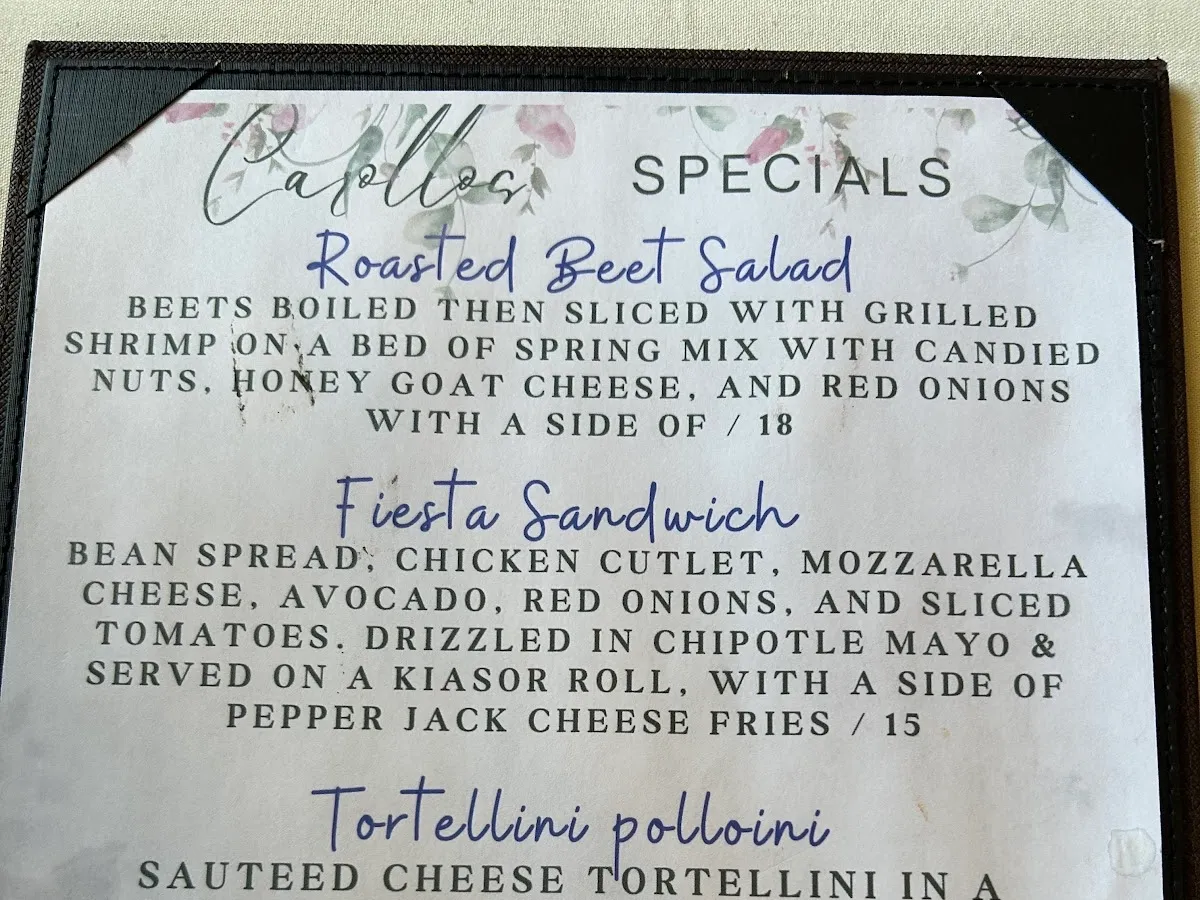 Casollos SPECIALS
Roasted Beet Salad
BEETS BOILED THEN SLICED WITH GRILLED
SHRIMP ON A BED OF SPRING MIX WITH CANDIED
NUTS, HONEY GOAT CHEESE, AND RED ONIONS
WITH A SIDE OF / 18
Fiesta Sandwich
BEAN SPREAD, CHICKEN CUTLET, MOZZARELLA
CHEESE, AVOCADO, RED ONIONS, AND SLICED
TOMATOES. DRIZZLED IN CHIPOTLE MAYO &
SERVED ON A KIASOR ROLL, WITH A SIDE OF
PEPPER JACK CHEESE FRIES / 15
Tortellini polloini
SAUTEED CHEESE TORTELLINI IN A